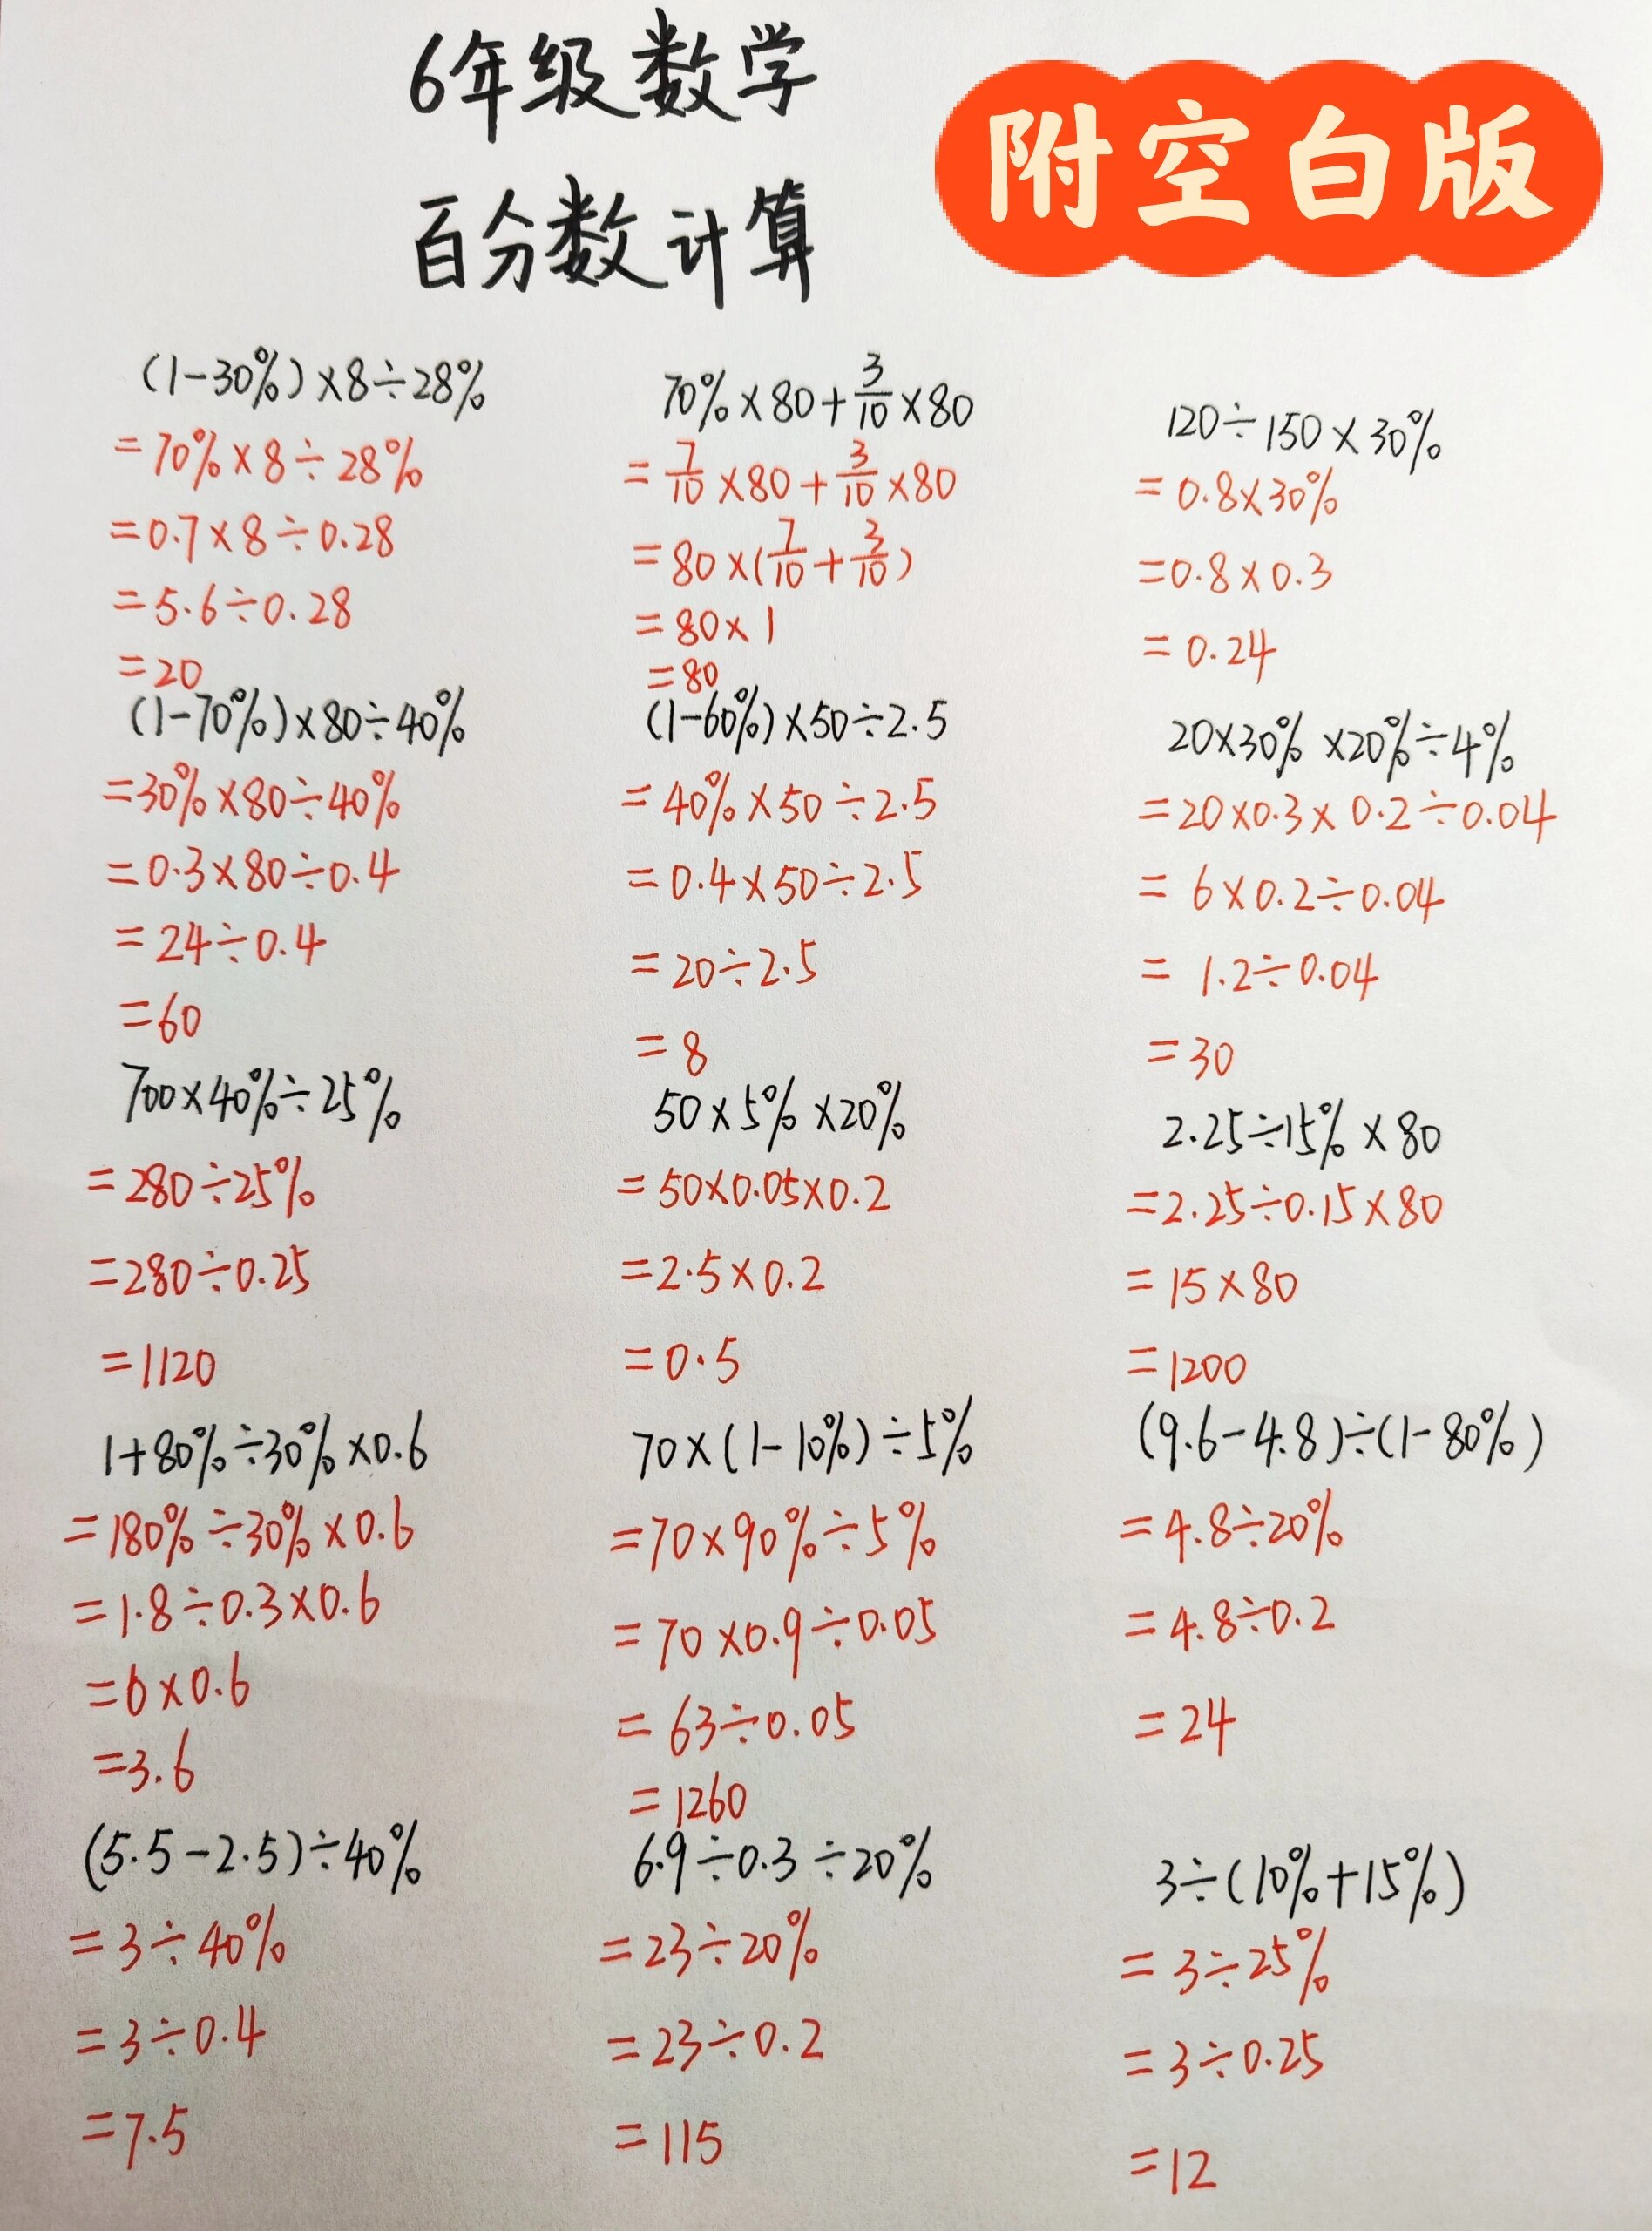 6年级数学
百分数计算
附空白版
(1-30%)×8÷28%
=70%×8÷28%
=0.7×8÷0.28
=5.6÷0.28
=20
70%×80+3/10×80
=7/10×80+3/10×80
=80×(7/10+3/10)
=80×1
=80
120÷150×30%
=0.8×30%
=0.8×0.3
=0.24
(1-70%)×80÷40%
=30%×80÷40%
=0.3×80÷0.4
=24÷0.4
=60
(1-60%)×50÷2.5
=40%×50÷2.5
=0.4×50÷2.5
=20÷2.5
=8
20×30%×20%÷4%
=20×0.3×0.2÷0.04
=6×0.2÷0.04
=1.2÷0.04
=30
700×40%÷25%
=280÷25%
=280÷0.25
=1120
50×5%×20%
=50×0.05×0.2
=2.5×0.2
=0.5
2.25÷15%×80
=2.25÷0.15×80
=15×80
=1200
1+80%÷30%×0.6
=180%÷30%×0.6
=1.8÷0.3×0.6
=6×0.6
=3.6
70×(1-10%)÷5%
=70×90%÷5%
=70×0.9÷0.05
=63÷0.05
=1260
(9.6-4.8)÷(1-80%)
=4.8÷20%
=4.8÷0.2
=24
(5.5-2.5)÷40%
=3÷40%
=3÷0.4
=7.5
6.9÷0.3÷20%
=23÷20%
=23÷0.2
=115
3÷(10%+15%)
=3÷25%
=3÷0.25
=12